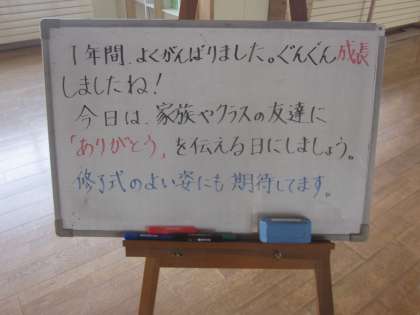 1年間、よくがんばりました。ぐんぐん成長
しましたね!
今日は、家族やクラスの友達に
「ありがとう」を伝える日にしましょう。
修了式のよい姿にも期待してます。